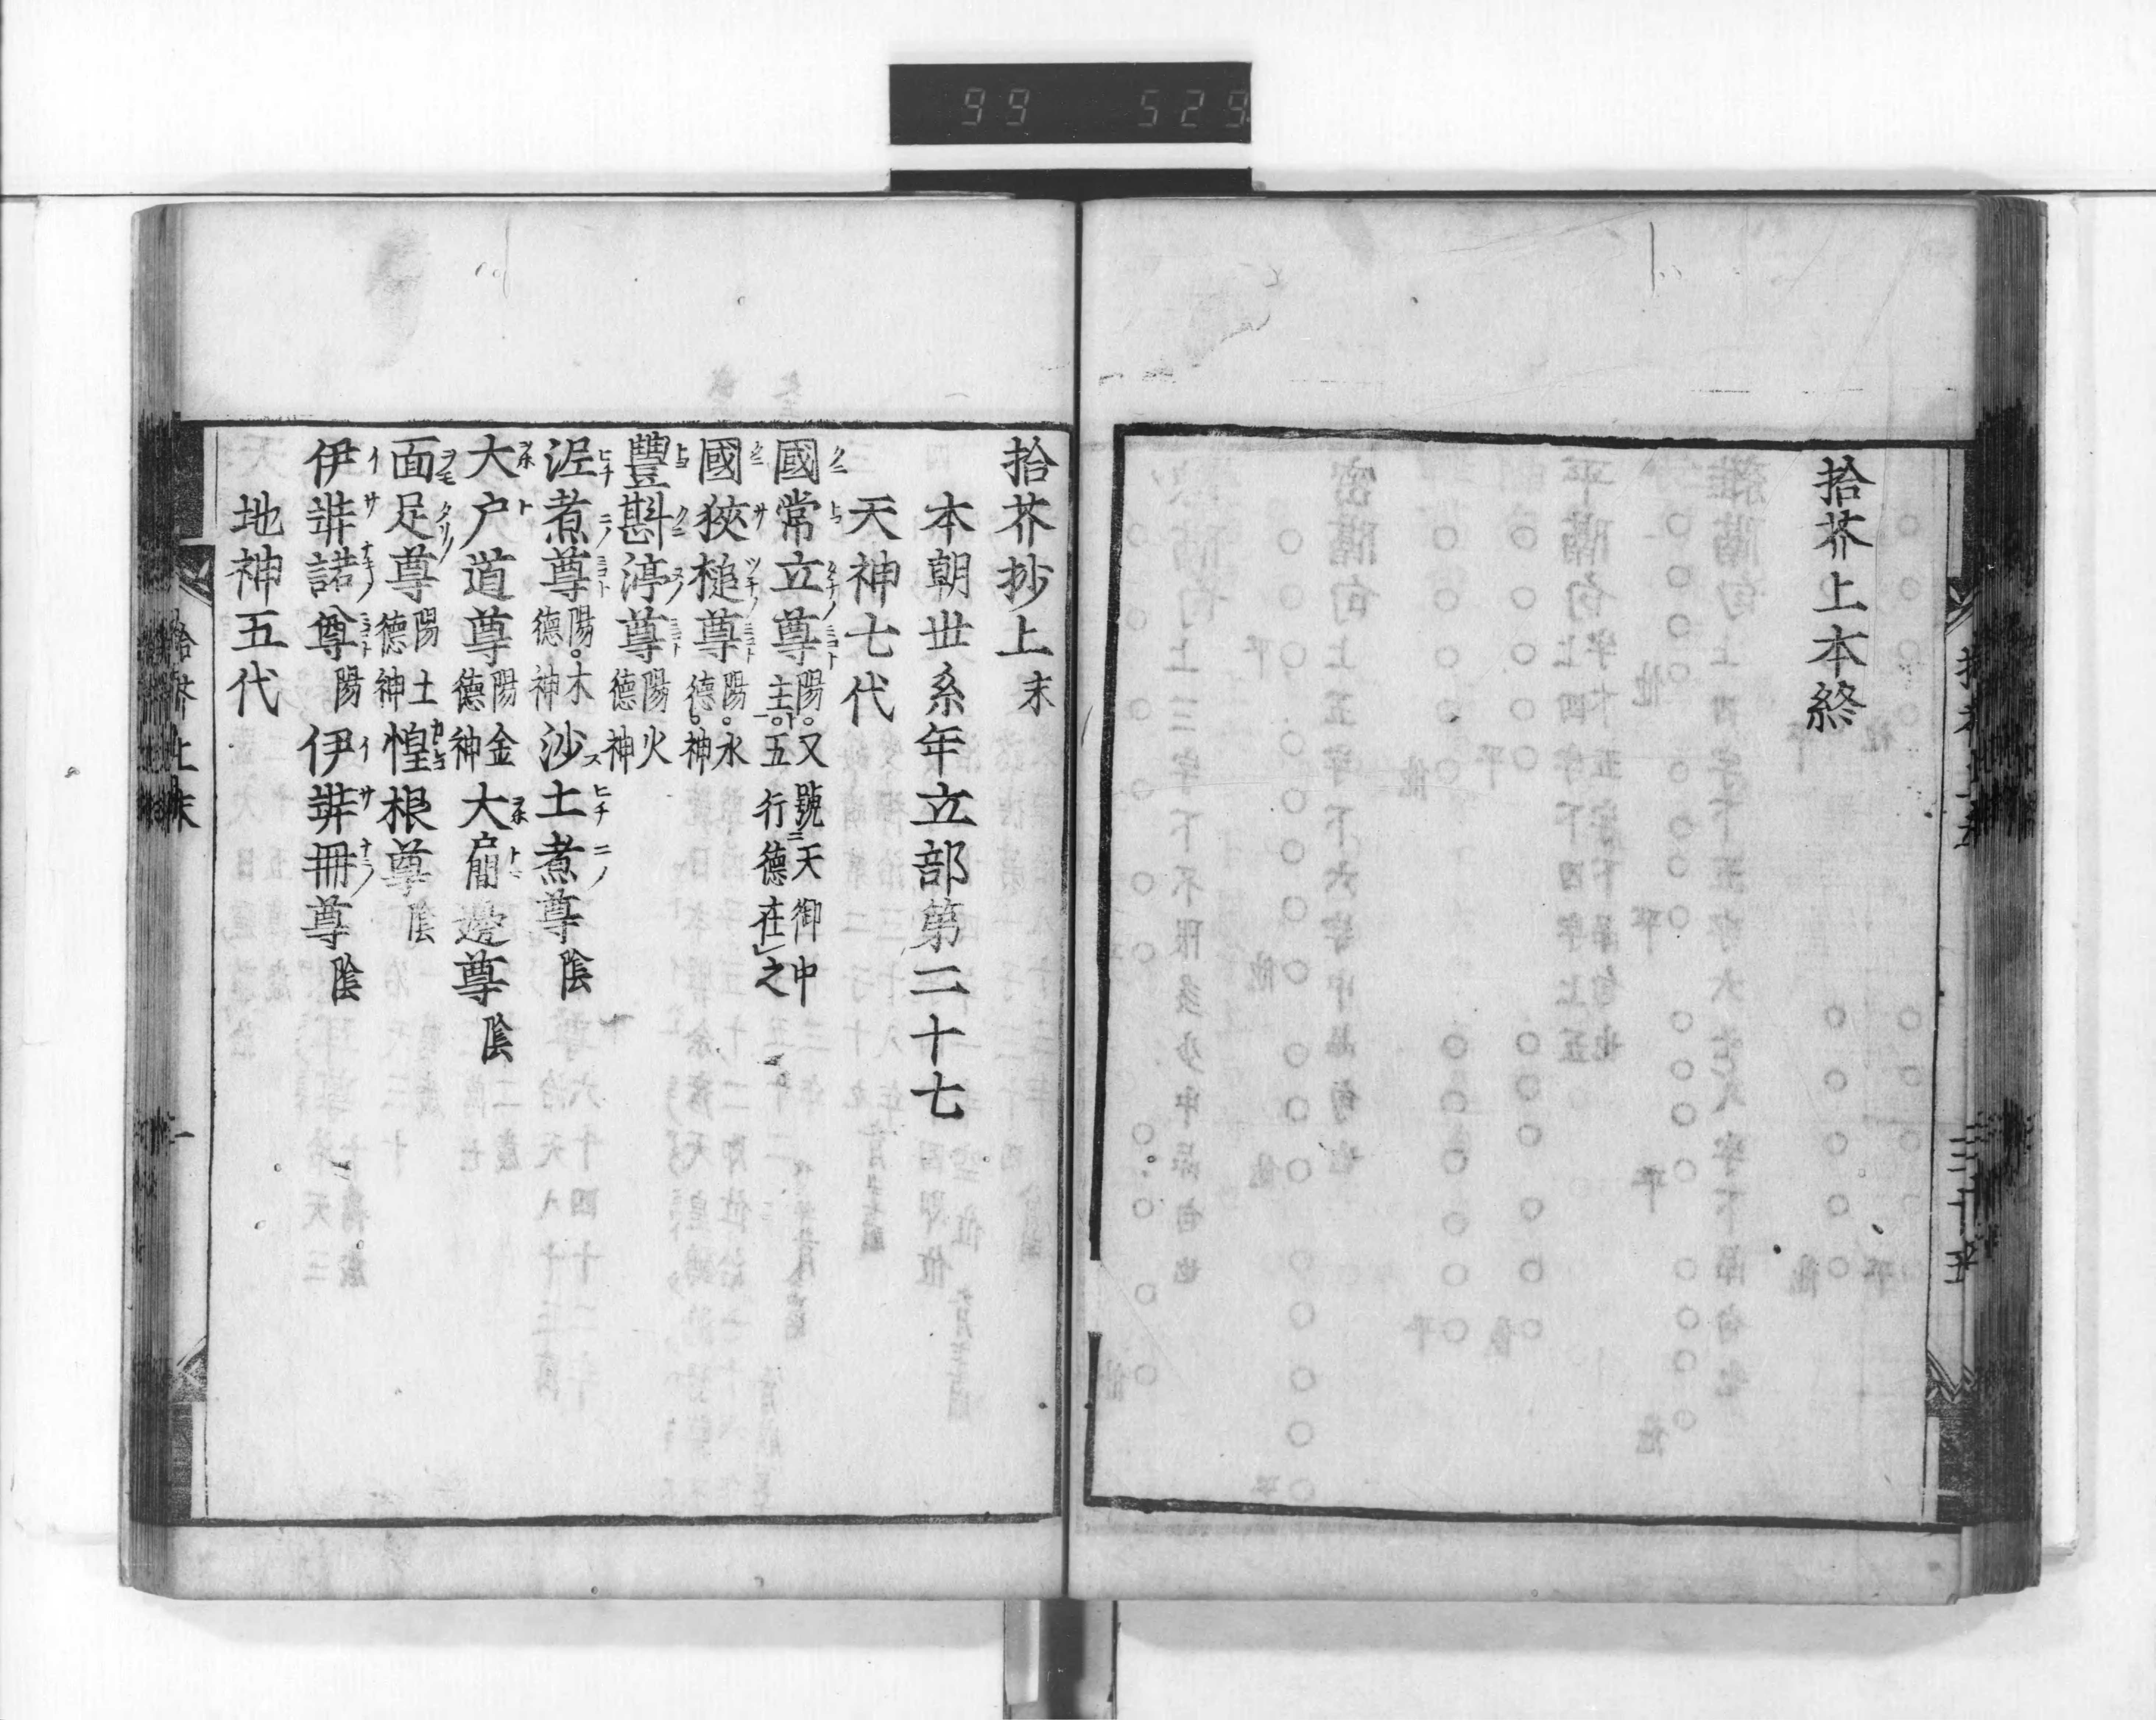 99 529
拾芥上本終
拾芥抄上末
本朝世系年立部第二十七
天神七代
國常立尊陽。又號天御中主。五行德在之
國狹槌尊陽。水德。神
豐斟渟尊陽火德神
泥煮尊陽。木德神 沙土煮尊陰
大户道尊陽金德神 大户間邊尊陰
面足尊陽土德神 惶根尊陰
伊弉諾尊陽 伊弉冊尊陰
地神五代
拾芥上末 一